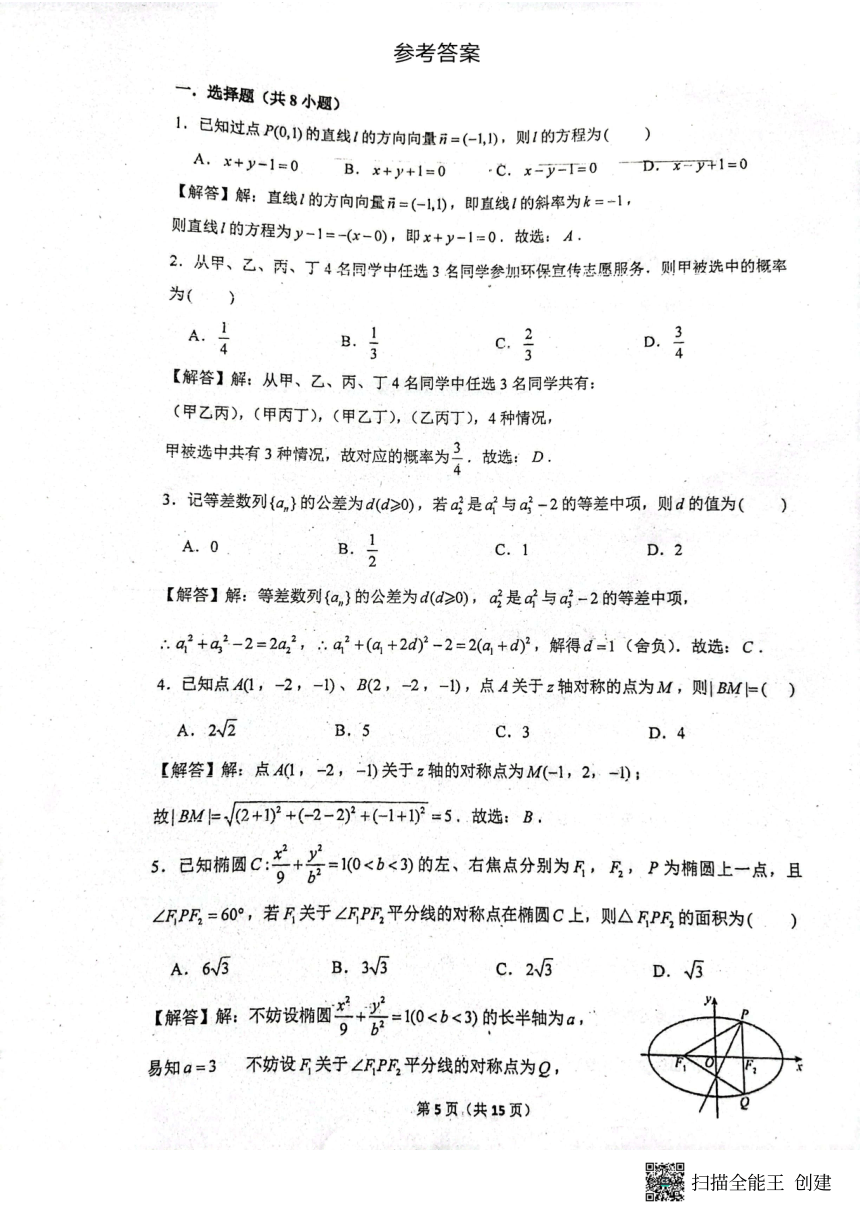 参考答案
一．选择题（共 8 小题）
1．已知过点 P(0,1) 的直线 l 的方向向量 n⃗ = (−1,1)，则 l 的方程为(　　)
A．x+y−1=0　B．x+y+1=0　C．x−y−1=0　D．x−y+1=0
【解答】解：直线 l 的方向向量 n⃗ = (−1,1)，即直线 l 的斜率为 k = −1，
则直线 l 的方程为 y−1=−(x−0)，即 x+y−1=0．故选：A．
2．从甲、乙、丙、丁 4 名同学中任选 3 名同学参加环保宣传志愿服务．则甲被选中的概率
为(　　)
A．1/4　B．1/3　C．2/3　D．3/4
【解答】解：从甲、乙、丙、丁 4 名同学中任选 3 名同学共有：
（甲乙丙），（甲丙丁），（甲乙丁），（乙丙丁），4 种情况，
甲被选中共有 3 种情况，故对应的概率为 3/4．故选：D．
3．记等差数列{aₙ}的公差为 d(d≥0)，若 a₂² 是 a₁² 与 a₃² −2 的等差中项，则 d 的值为(　　)
A．0　B．1/2　C．1　D．2
【解答】解：等差数列{aₙ}的公差为 d(d≥0)，a₂² 是 a₁² 与 a₃² −2 的等差中项，
∴a₁² + a₃² −2 = 2a₂²，∴a₁² + (a₁+2d)² −2 = 2(a₁+d)²，解得 d=1（舍负）．故选：C．
4．已知点 A(1，−2，−1)、B(2，−2，−1)，点 A 关于 z 轴对称的点为 M，则|BM|=(　　)
A．2√2　B．5　C．3　D．4
【解答】解：点 A(1，−2，−1) 关于 z 轴的对称点为 M(−1，2，−1)；
故|BM|=√((2+1)² +(−2−2)² +(−1+1)²) =5．故选：B．
5．已知椭圆 C: x²/9 + y²/b² =1(0<b<3) 的左、右焦点分别为 F₁，F₂，P 为椭圆上一点，且
∠F₁PF₂ = 60°，若 F₁ 关于∠F₁PF₂ 平分线的对称点在椭圆 C 上，则△F₁PF₂ 的面积为(　　)
A．6√3　B．3√3　C．2√3　D．√3
【解答】解：不妨设椭圆 x²/9 + y²/b² =1(0<b<3) 的长半轴为 a，
易知 a=3　不妨设 F₁ 关于∠F₁PF₂ 平分线的对称点为 Q，
y
P
F₁
O
F₂
x
Q
第 5 页（共 15 页）
扫描全能王 创建